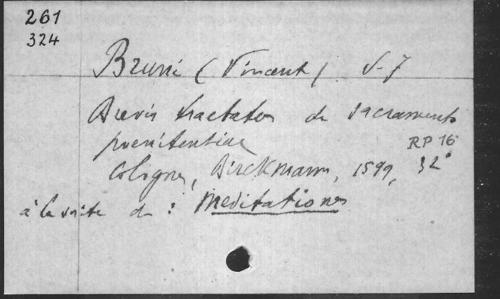 261
324
Bruni (Vincent) S-J
Brevis tractatus de sacramento
poenitentiae
RP 16
Cologne, Birckmann, 1599, 32°
à la suite de : Meditationes